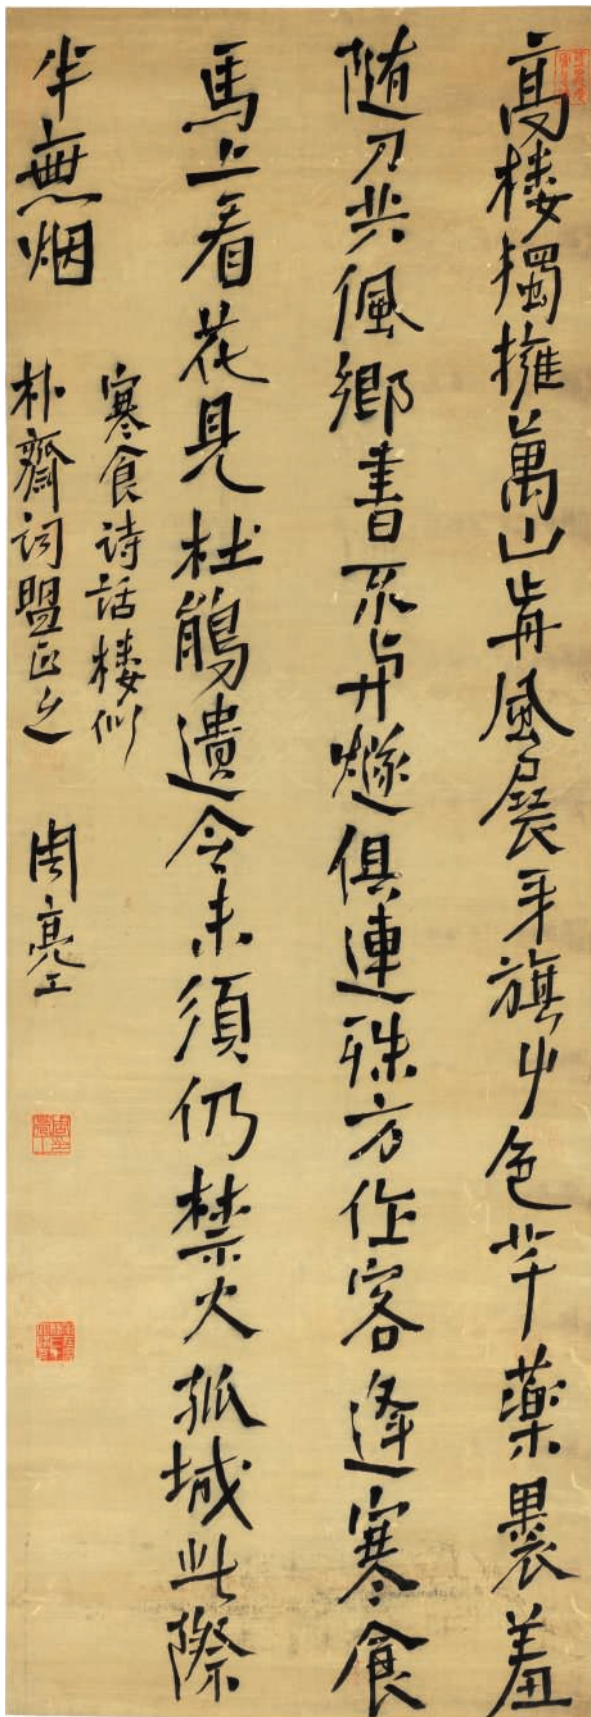 高樓獨擁萬山歬風展牙旗艸色芊藥裹羞
隨刀共佩鄉書不與燧俱連殊方作客逢寒食
馬上看花見杜鵑遺令未須仍禁火孤城此際
半無烟
寒食詩話樓似
朴齋詞盟正之
周亮工